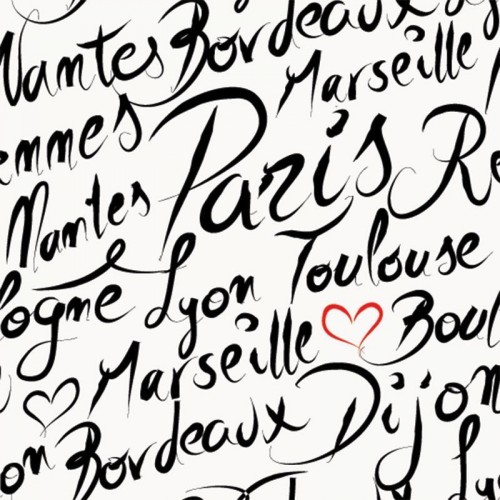 Nantes Bordeaux
Marseille
ennes Paris Re
Nantes Toulouse
logne Lyon
Marseille Boul
on Bordeaux Dijon
Ly